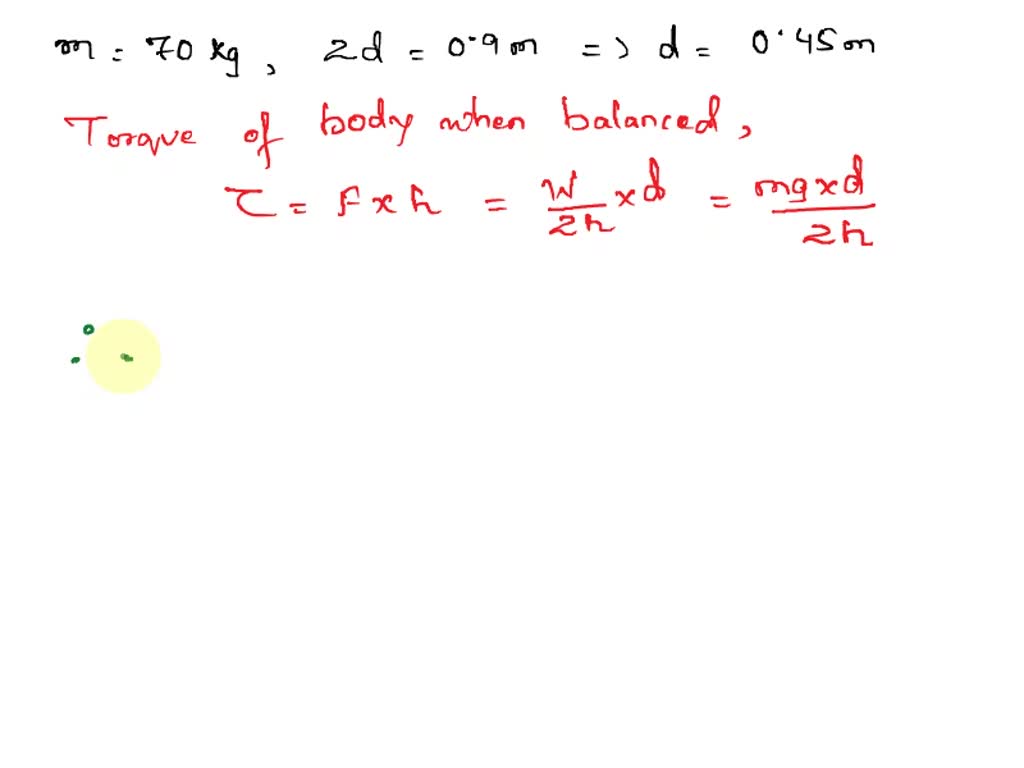 m = 70 kg, 2d = 0.9 m => d = 0.45 m
Torque of body when balanced,
τ = F x h = W/2h x d = mg x d/2h